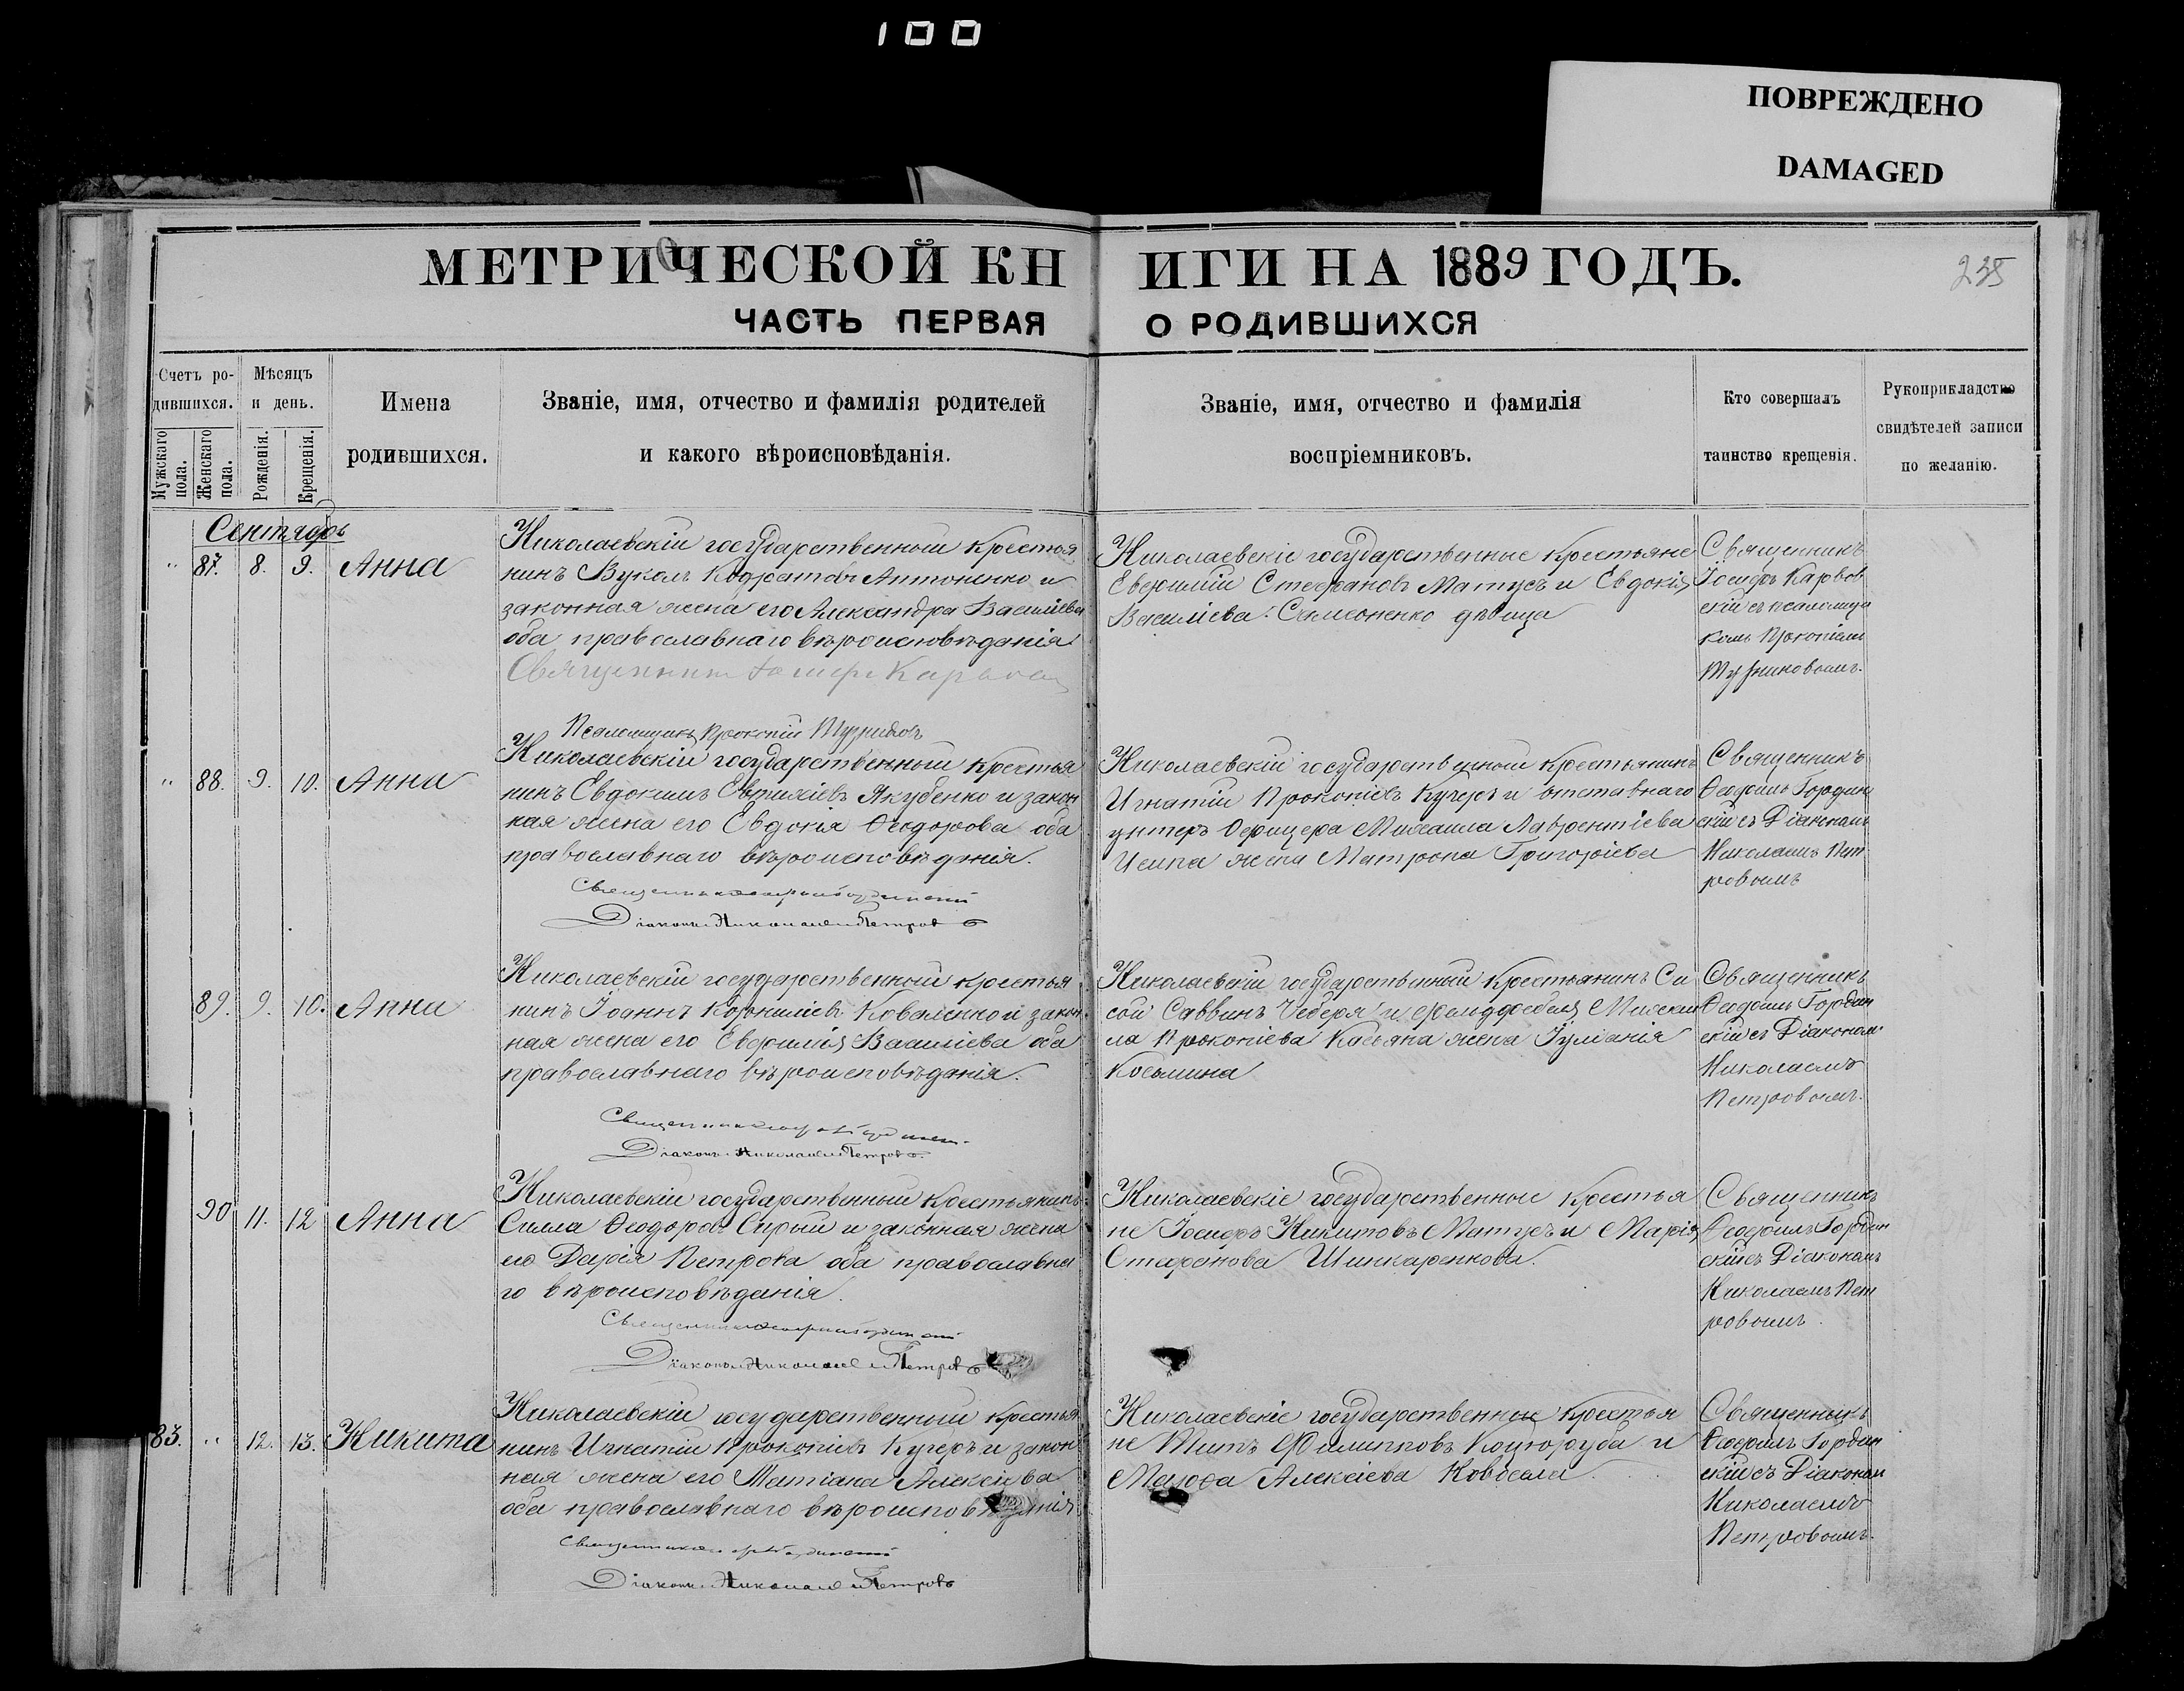 100
ПОВРЕЖДЕНО
DAMAGED
МЕТРИЧЕСКОЙ КНИГИ НА 1889 ГОДЪ.
235
ЧАСТЬ ПЕРВАЯ О РОДИВШИХСЯ
Счетъ ро-
дившихся.
Мужскаго пола.
Женскаго пола.
Мѣсяцъ
и день.
Рожденія.
Крещенія.
Имена
родившихся.
Званіе, имя, отчество и фамилія родителей
и какого вѣроисповѣданія.
Званіе, имя, отчество и фамилія
воспріемниковъ.
Кто совершалъ
таинство крещенія.
Рукоприкладство
свидѣтелей записи
по желанію.
Сентябрь
„ 87. 8. 9. Анна
Николаевскій государственный крестья
нинъ Вуколъ Кодратовъ Антоненко и
законная жена его Александра Василіева
оба православнаго вѣроисповѣданія.
Священникъ Іосифъ
Псаломщикъ Прокопій
Николаевскіе государственные крестьяне
Евфимій Стефановъ Матусъ и Евдокія
Василіева Самсоненко дѣвица
Священникъ
Іосифъ Карвов
скій съ псаломщи
комъ Прокопіемъ
„ 88. 9. 10. Анна
Николаевскій государственный крестья
нинъ Евдокимъ Евтихіевъ Якубенко и закон
ная жена его Евдокія Ѳеодорова оба
православнаго вѣроисповѣданія.
Діаконъ Николай Петровъ
Николаевскій государственный крестьянинъ
Игнатій Прокопіевъ Кучеръ и отставнаго
унтеръ офицера Михаила Лаврентіева
жена Матрона Григоріева
Священникъ
Ѳеофилъ Гордин
скій съ Діакономъ
Николаемъ Пет
ровымъ
89. 9. 10. Анна
Николаевскій государственный крестья
нинъ Іоаннъ Корниліевъ Коваленко и закон
ная жена его Евфимія Василіева оба
православнаго вѣроисповѣданія.
Діаконъ Николай Петровъ
Николаевскій государственный крестьянинъ Си
сой Саввинъ Чеберя и фельдфебеля Михаи
ла Прокопіева Касьяна жена Іуліанія
Косьмина
Священникъ
Ѳеофилъ Гордин
скій съ Діакономъ
Николаемъ
Петровымъ.
90 11. 12 Анна
Николаевскій государственный крестьянинъ
Сила Ѳеодоровъ Сирый и законная жена
его Дарія Петрова оба православна
го вѣроисповѣданія.
Діаконъ Николай Петровъ
Николаевскіе государственные крестья
не Іосифъ Никитовъ Матусъ и Марія
Стефанова Шинкаренкова.
Священникъ
Ѳеофилъ Гордин
скій съ Діакономъ
Николаемъ Пет
ровымъ.
83. „ 12. 13. Никита
Николаевскій государственный крестья
нинъ Игнатій Прокопіевъ Кучеръ и закон
ная жена его Татіана Алексіева
оба православнаго вѣроисповѣданія
Діаконъ Николай Петровъ
Николаевскіе государственные крестья
не Титъ Филипповъ Коцюруба и
Алексіева
Священникъ
Ѳеофилъ Гордин
скій съ Діаконом
Николаемъ
Петровымъ.